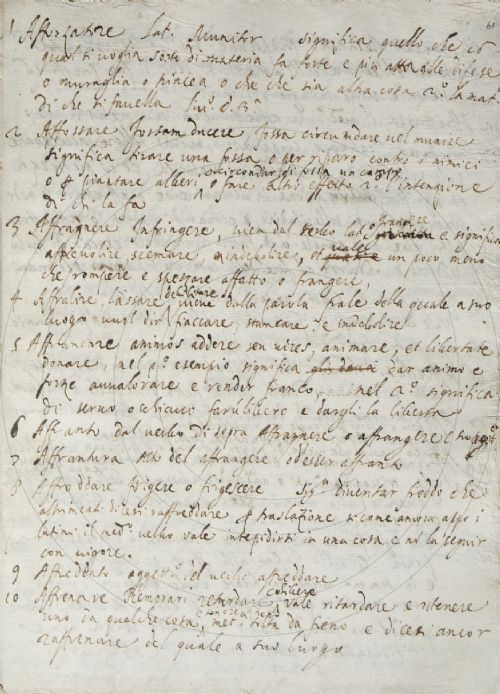 61
1 Afforzatore Lat. Muniter significa quello che cō
qual si voglia sorte di materia fa forte e più atta alle difese
o muraglia o piazza o che che sia altra cosa 2.º la mat.ª
di che si favella
2 Affossare Fossam ducere fossa circumdare vel munire
significa tirare una fossa o per riparo contro i nimici
o circondar di fossa un campo
o piantare alberi o fare altri effetto 2.º l'intenzione
di chi la fa
3 Affragnere Infringere, vien dal verbo lat.º frangere e significa
affievolire, scemare, indebolire, et vale un poco meno
che rompere e spezzare affatto o frangere,
4 Affralire, lassare debilitare viene dalla parola frale della quale a suo
luogo vuol dir fiaccare, stancare e indebolire
5 Affrancare animos addere seu vires, animare, et libertate
donare, nel p.º esempio significa dar animo e
forze avvalorare e render franco, nel 2.º significa
di servo o schiavo farli libero e dargli la libertà
6 Affranto dal verbo di sopra Affragnere o affrangere
7 Affrantura del affrangere o d'esser affranto
8 Affreddare frigere o frigescere Sig.ª diventar freddo che
altrimenti dicesi raffreddare traslazione si come ancora appo i
latini il med.º verbo vale intepidirsi in una cosa e nō la seguir
con vigore.
9 Affreddato aggett.º del verbo affreddare
10 Affrenare Remorari retardare cohibere vale ritardare e ritenere
uno da qualche cosa met. tolta da freno e dicesi ancor
raffrenare del quale a suo luogo